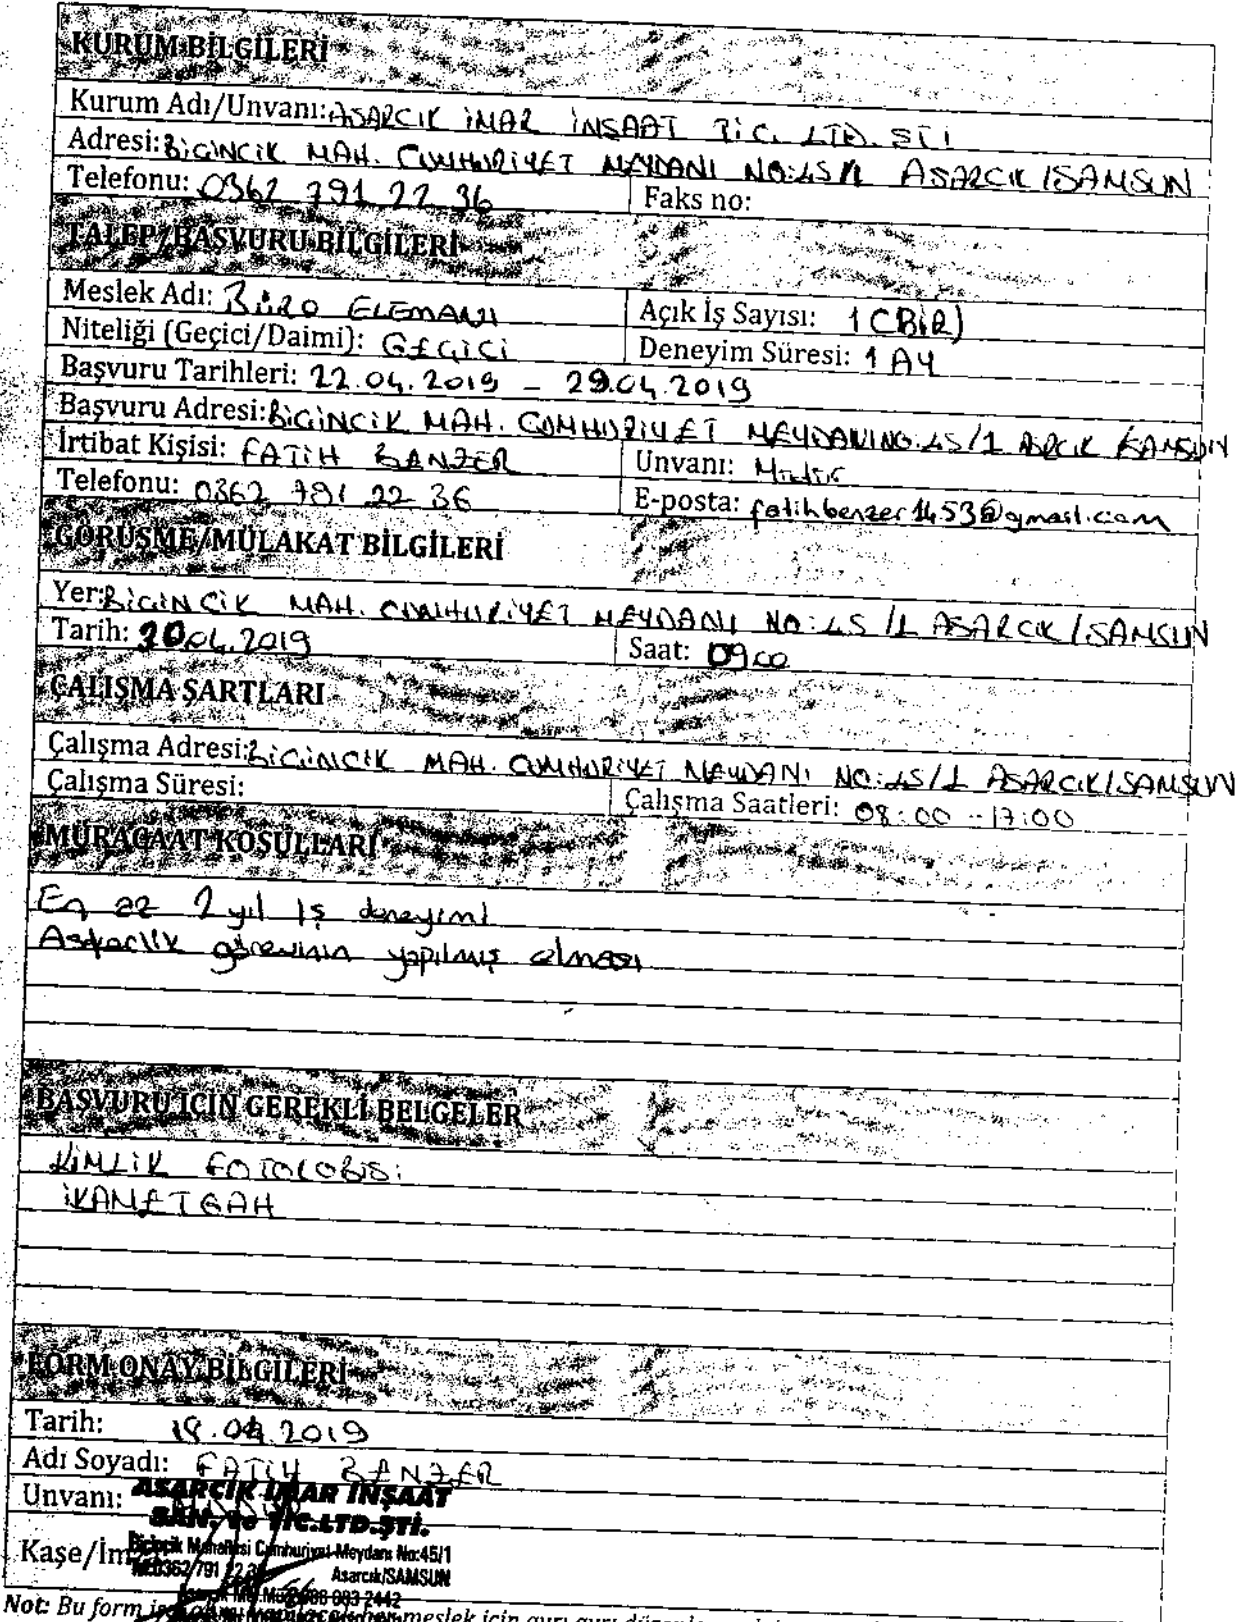 KURUM BİLGİLERİ
Kurum Adı/Unvanı: ASARCIK İMAR İNŞAAT TİC. LTD. ŞTİ
Adresi: BİÇİNCİK MAH. CUMHURİYET MEYDANI NO:45/1 ASARCIK/SAMSUN
Telefonu: 0362 791 22 36 Faks no:
TALEP/BAŞVURU BİLGİLERİ
Meslek Adı: BÜRO ELEMANI Açık İş Sayısı: 1 (BİR)
Niteliği (Geçici/Daimi): GEÇİCİ Deneyim Süresi: 1 AY
Başvuru Tarihleri: 22.04.2019 - 29.04.2019
Başvuru Adresi: BİÇİNCİK MAH. CUMHURİYET MEYDANI NO:45/1 ASRCIK SAMSUN
İrtibat Kişisi: FATİH BENZER Unvanı: Müdür
Telefonu: 0362 791 22 36 E-posta: fatihbenzer1453@gmail.com
GÖRÜŞME/MÜLAKAT BİLGİLERİ
Yer: BİÇİNCİK MAH. CUMHURİYET MEYDANI NO:45/1 ASARCIK/SAMSUN
Tarih: 30.04.2019 Saat: 09.00
ÇALIŞMA ŞARTLARI
Çalışma Adresi: BİÇİNCİK MAH. CUMHURİYET MEYDANI NO:45/1 ASARCIK/SAMSUN
Çalışma Süresi: Çalışma Saatleri: 08:00 - 17:00
MÜRACAAT KOŞULLARI
En az 2 yıl iş deneyimi
Askerlik görevinin yapılmış olması
BAŞVURU İÇİN GEREKLİ BELGELER
KİMLİK FOTOKOBİSİ
İKAMETGAH
FORM ONAY BİLGİLERİ
Tarih: 18.04.2019
Adı Soyadı: FATİH BENZER
Unvanı: ASARCIK İMAR İNŞAAT
SAN. ve TİC.LTD.ŞTİ.
Biçincik Mahallesi Cumhuriyet Meydanı No:45/1
Kaşe/İm 0362/791 22 36 Asarcık/SAMSUN
083 2442
Not: Bu form meslek için ayrı ayrı